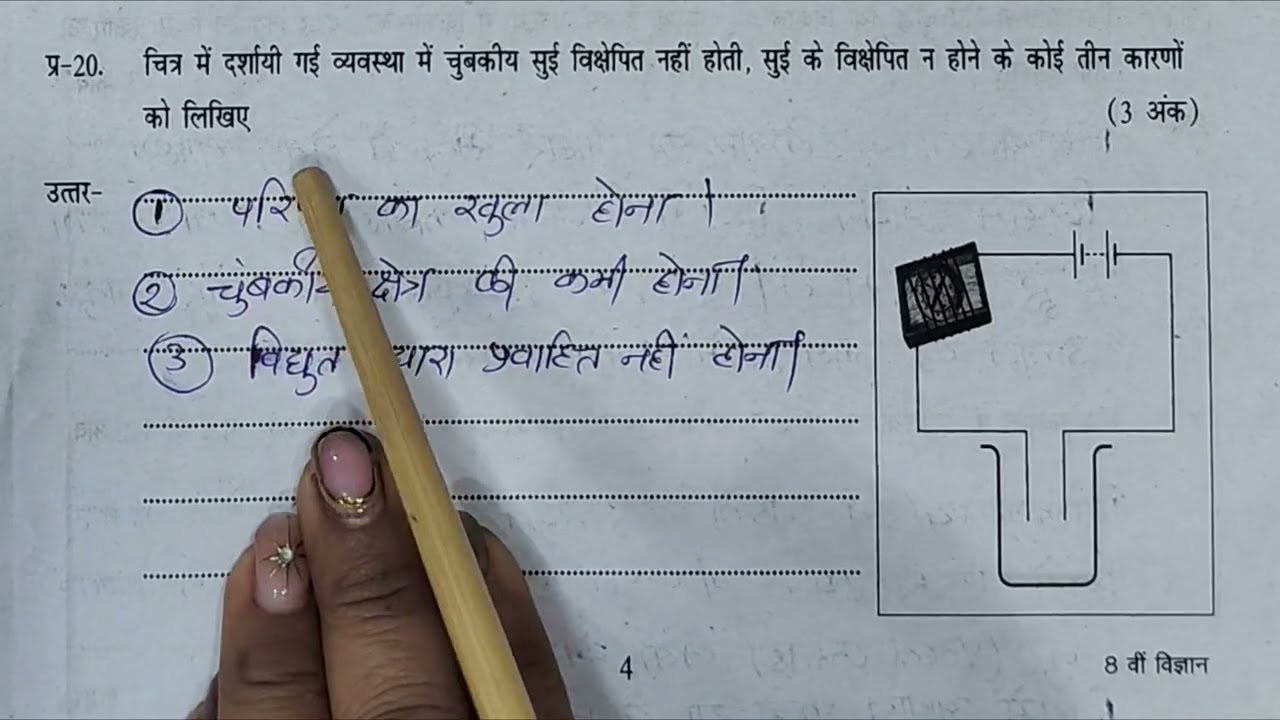 प्र-20. चित्र में दर्शायी गई व्यवस्था में चुंबकीय सुई विक्षेपित नहीं होती, सुई के विक्षेपित न होने के कोई तीन कारणों
को लिखिए (3 अंक)
उत्तर- ① का खुला होना।
② क्षेत्र की कमी होना।
③ विद्युत धारा प्रवाहित नहीं होना।
4 8 वीं विज्ञान